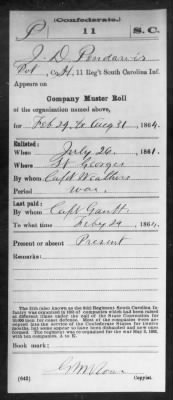 (Confederate.)
P 11 S.C.
J. D. Pendarvis
Pvt, Co. H, 11 Reg't South Carolina Inf.
Appears on
Company Muster Roll
of the organization named above,
for Feb 29, to Aug 31, 1864.
Enlisted:
When July 26, 1861.
Where St Georges
By whom Capt Weathers
Period war.
Last paid:
By whom Capt Gantt
To what time Feby 29, 1864.
Present or absent Present
Remarks:
The 11th (also known as the 9th) Regiment South Carolina Infantry was organized in 1861 of companies which had been raised at different times under the call of the State Convention for 10,000 men for coast defense. Most of the companies were accepted into the service of the Confederate States for twelve months, but some appear to have been disbanded and new ones formed. The regiment was re-organized for the war May 3, 1862, with ten companies, A to K.
Book mark:
(642)
Copyist.